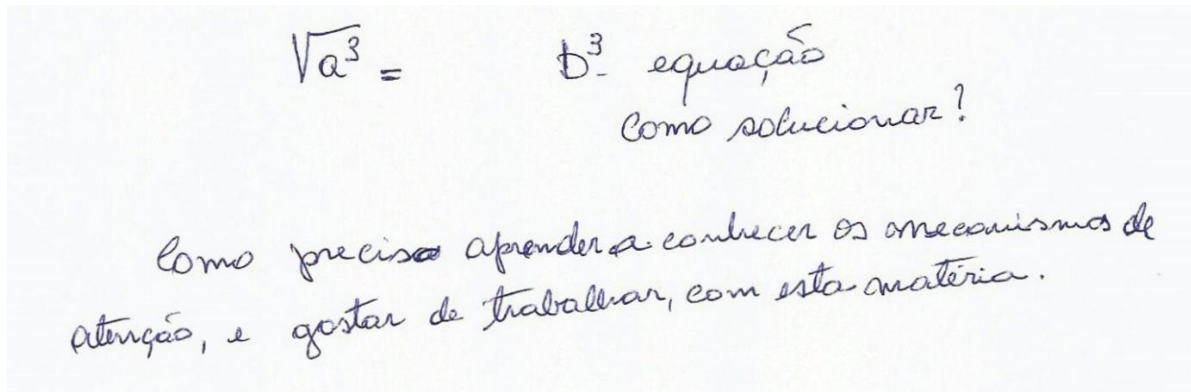 √a³ = b³- equação
Como solucionar?
Como preciso aprender a conhecer os mecanismos de
atenção, e gostar de trabalhar, com esta matéria.